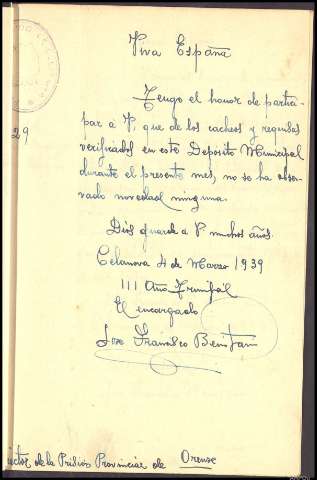 Viva España
Tengo el honor de partici-
par a V, que de los cacheos y requisas
verificados en este Deposito Municipal
durante el presente mes, no se ha obser-
vado novedad ninguna.
Dios guarde a V muchos años.
29
Celanova 4 de Marzo 1939
III Año Triunfal
El encargado
Jose Francisco
ector de la Prision Provincial de Orense